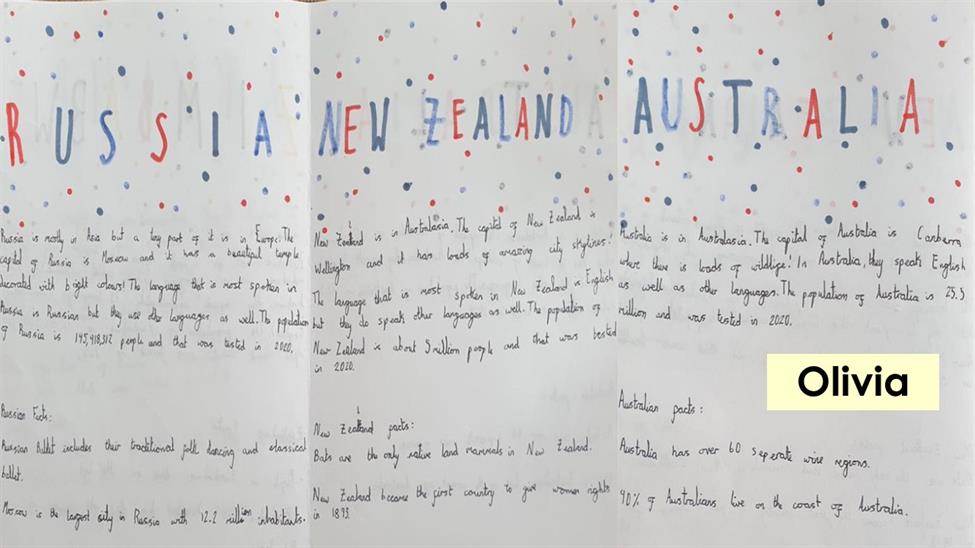 RUSSIA
Russia is mostly in Asia but a tiny part of it is in Europe. The
capital of Russia is Moscow and it has a beautiful temple
decorated with bright colours! The language that is most spoken in
Russia is Russian but they use other languages as well. The population
of Russia is people and that was tested in 2020.
Russian Facts:
Russian Ballet includes their traditional folk dancing and classical
ballet.
Moscow is the largest city in Russia with 12.2 million inhabitants.
NEW ZEALAND
New Zealand is in Australasia. The capital of New Zealand is
Wellington and it has loads of amazing city skylines!
The language that is most spoken in New Zealand is English
but they do speak other languages as well. The population of
New Zealand is about 5 million people and that was tested
in 2020.
New Zealand facts:
Bats are the only native land mammals in New Zealand.
New Zealand became the first country to give women rights
in 1893.
AUSTRALIA
Australia is in Australasia. The capital of Australia is Canberra
where there is loads of wildlife! In Australia, they speak English
as well as other languages. The population of Australia is 25.5
million and was tested in 2020.
Olivia
Australian facts:
Australia has over 60 seperate wine regions.
90% of Australians live on the coast of Australia.